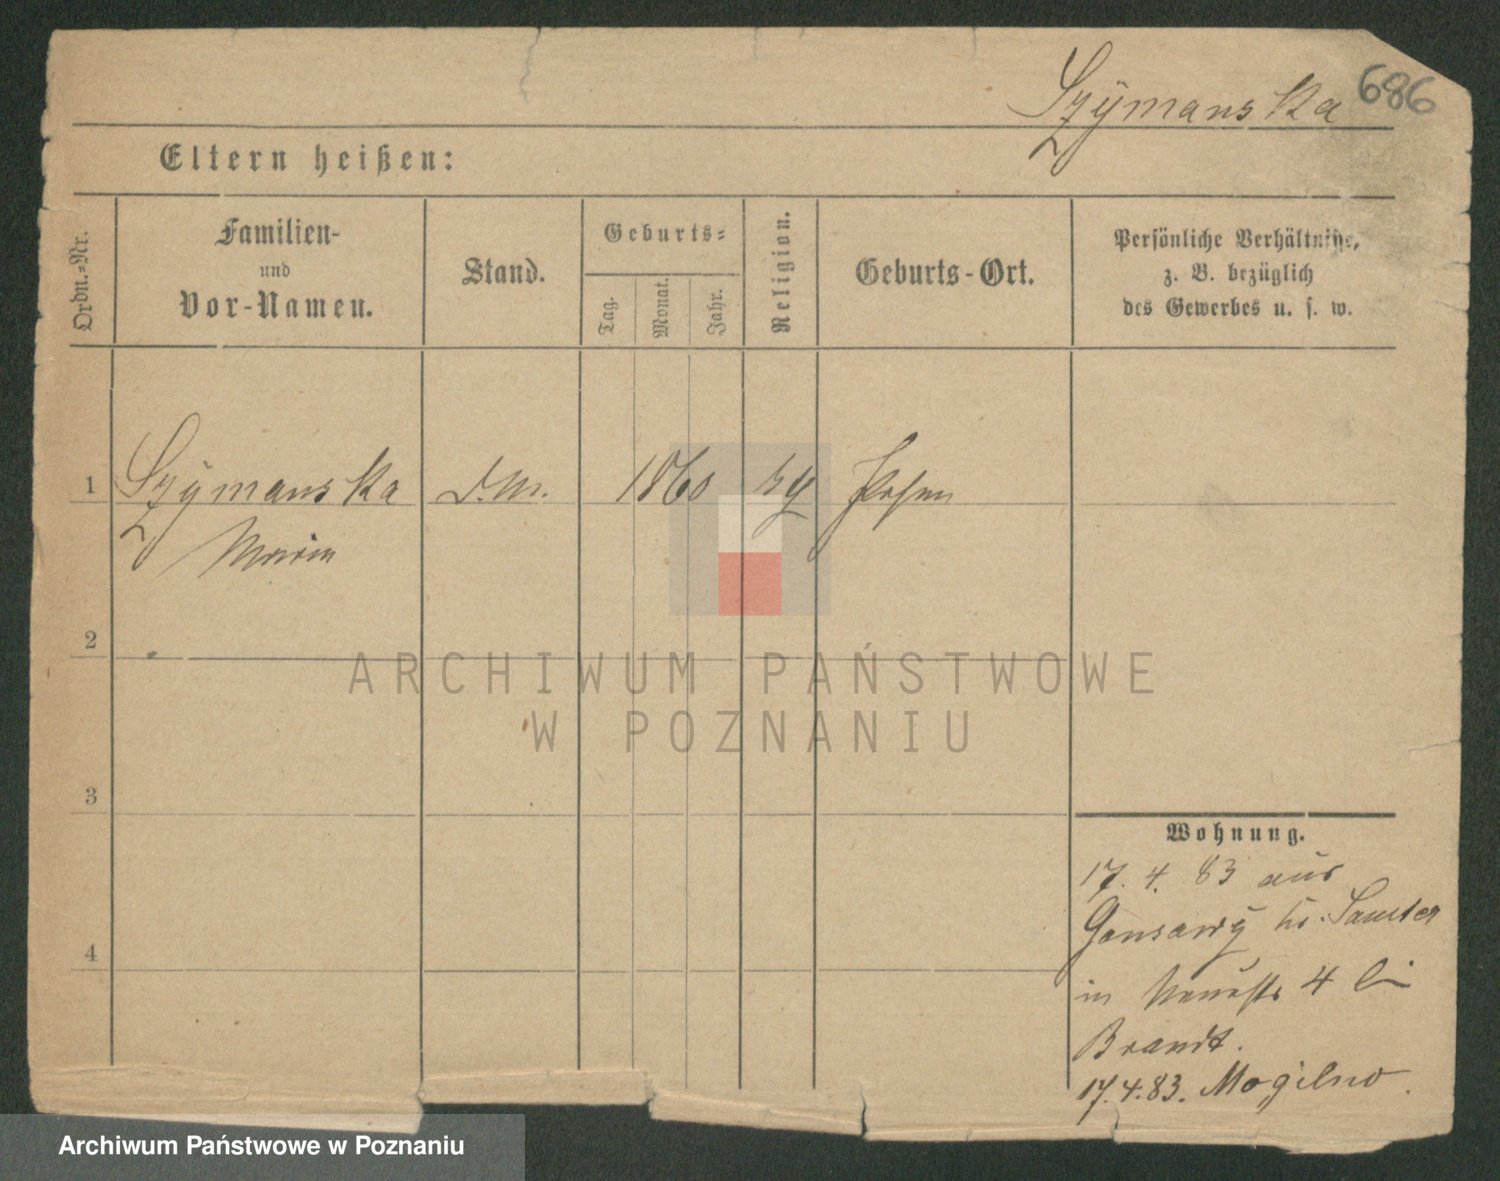 Szymanska 686
Eltern heißen:
Ordn.-Nr.
Familien-
und
Vor-Namen.
Stand.
Geburts-
Tag.
Monat.
Jahr.
Religion.
Geburts-Ort.
Persönliche Verhältnisse,
z. B. bezüglich
des Gewerbes u. s. w.
1 Szymanska D.M. 1860 Posen
Maria
2
ARCHIWUM PAŃSTWOWE
W POZNANIU
3
Wohnung.
17. 4. 83 aus
Gonsawy Kr. Samter
4
in 4 bei
Brandt.
17.4.83. Mogilno.
Archiwum Państwowe w Poznaniu